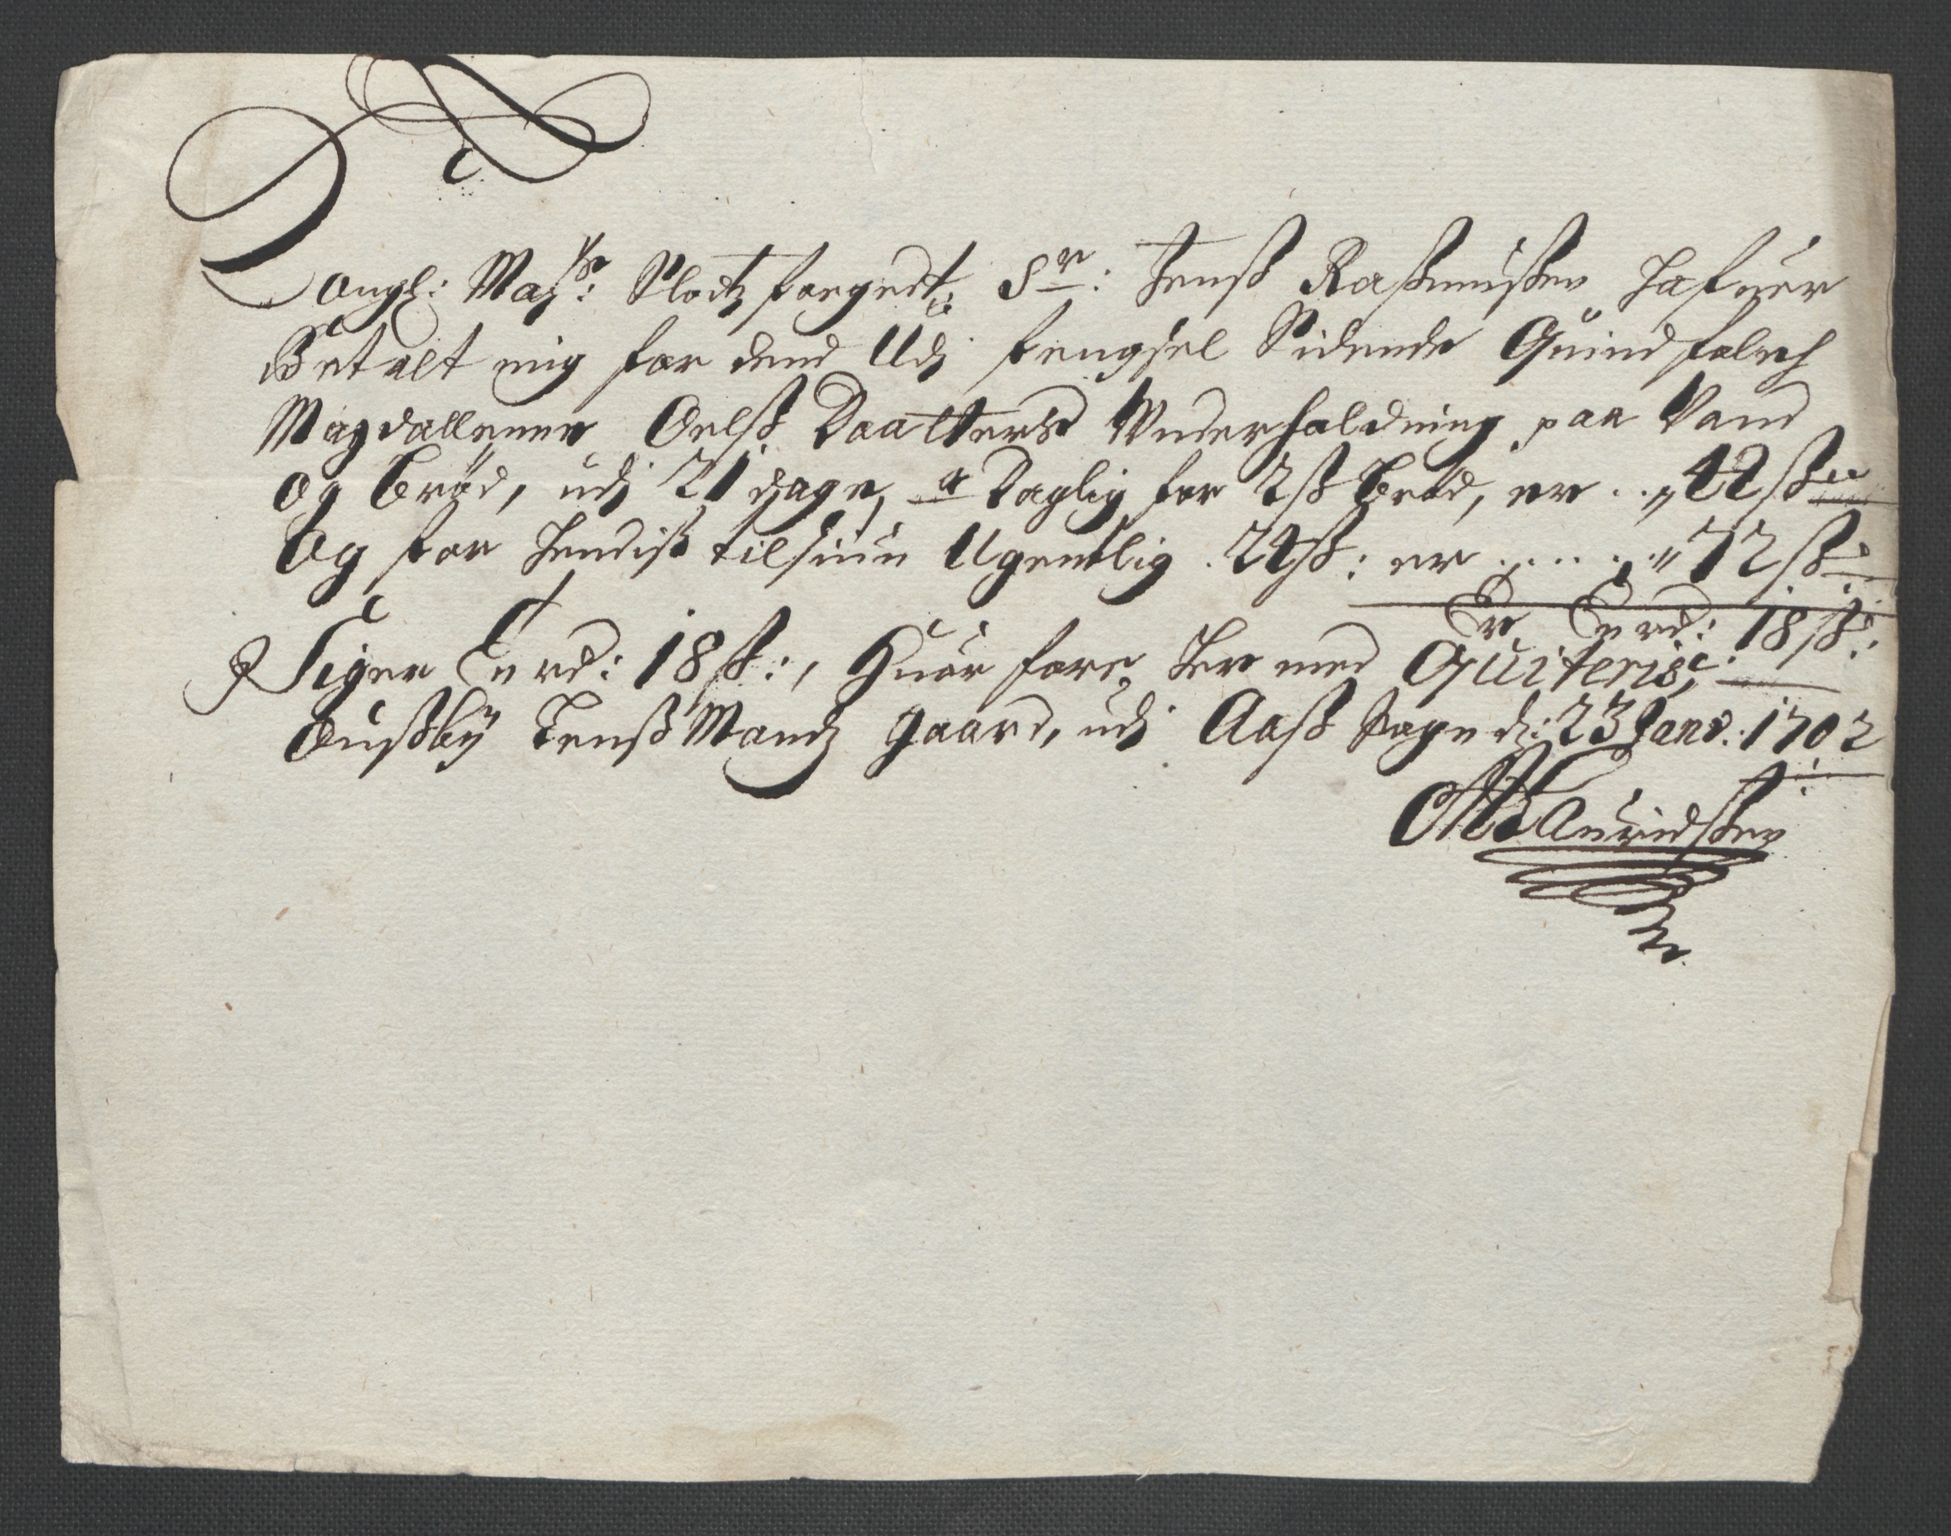 Kongl: Maÿst: Slotz foegedt, Sr: Jenß Raßmußen hafuer
Betalt mig for dend Udj fengsel Sidende Quindfolch
Magdallenne Oelß Daatters Underholdning paa Vand
og brød, udj 21 dage, a Daglig for 2ß brød, er .. 42ß
Og for hendiß tilsiun Ugentlig . 24ß: er ..... 72ß
Er En rd: 18ß:
Siger En rd: 18ß:, huor fore her med Quiteris,
Jenß Mandz gaard, udj Aaß Sogn d: 23 Janv: 1702
Lauridßen